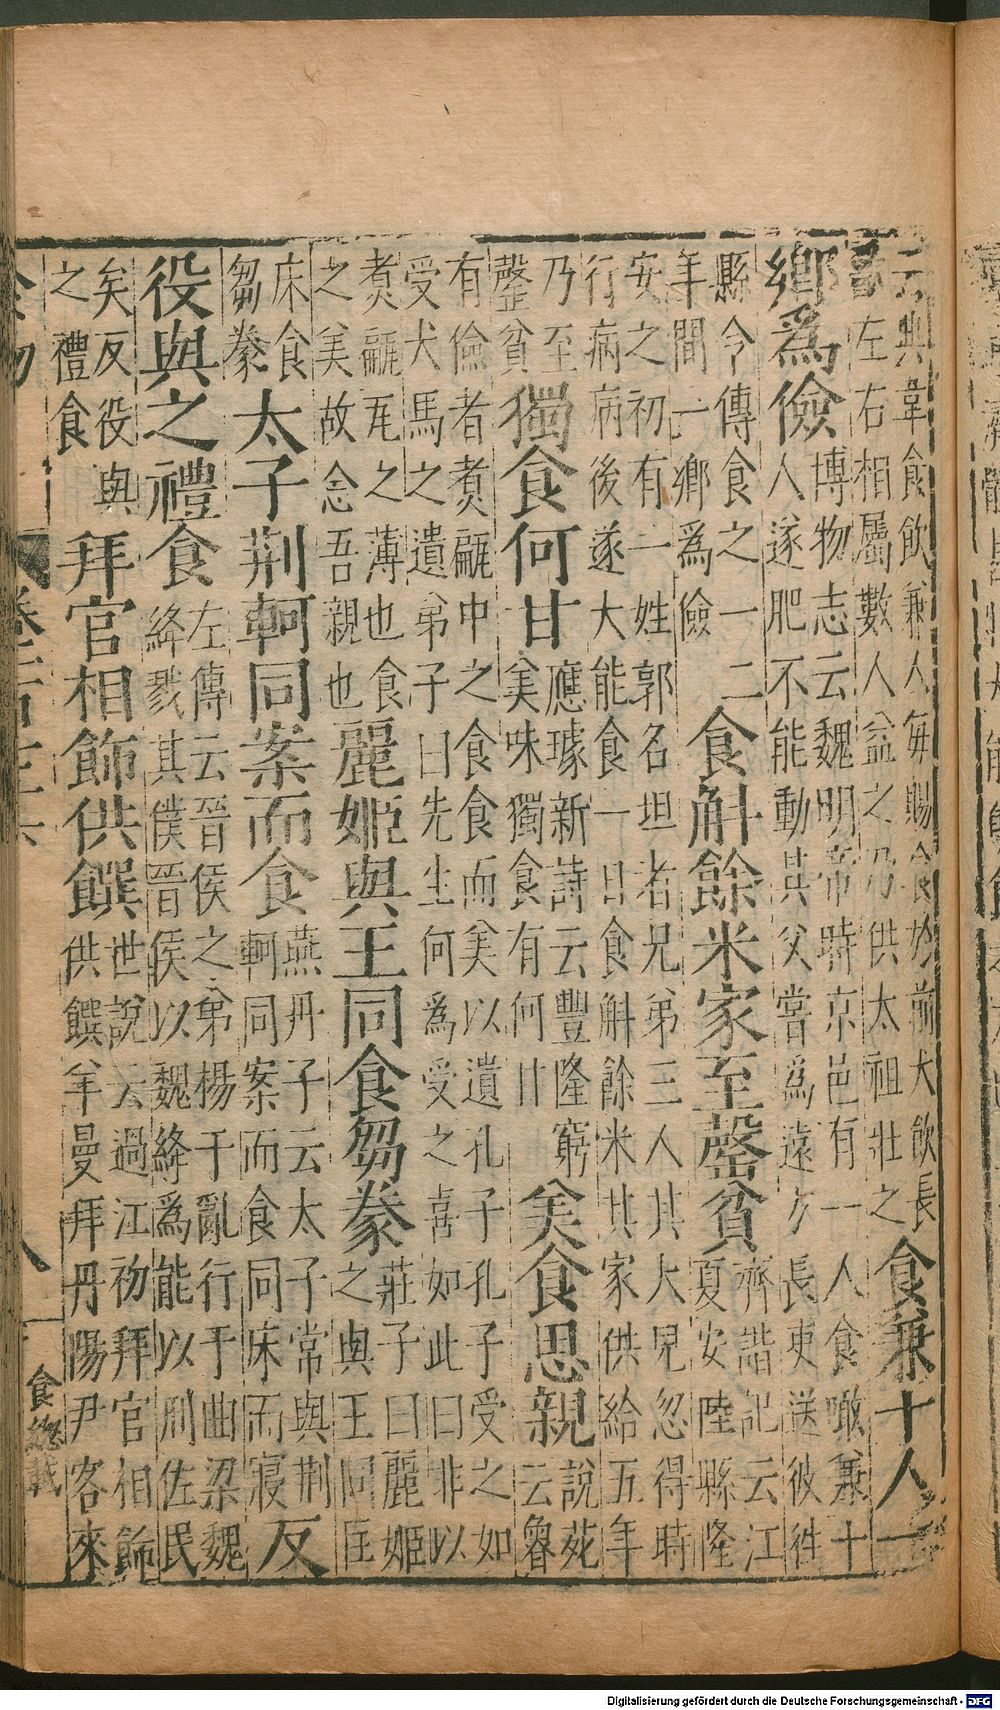 云典韋食飲兼人每賜食於前大飲長
左右相屬數人益之乃供太祖壯之
食兼十人一
鄉爲儉
博物志云魏明帝時京邑有一人食噉兼十
人遂肥不能動其父嘗爲遠方長吏送彼往
縣令傳食之一二
年間一鄉爲儉
食斛餘米家至罄貧
齊諧記云江
夏安陸縣隆
安之初有一姓郭名坦者兄弟三人其大兒忽得時
行病病後遂大能食一日食斛餘米其家供給五年
乃至
罄貧
獨食何甘
應璩新詩云豐隆窮
美味獨食有何甘
美食思親
說苑
云魯
有儉者煑㼽中之食食而美以遺孔子孔子受之如
受犬馬之遺弟子曰先生何爲受之喜如此曰非以
煑㼽瓦之薄也食
之美故念吾親也
麗姬與王同食芻豢
莊子曰麗姬
之與王同匡
床食
芻豢
太子荆軻同案而食
燕丹子云太子常與荆
軻同案而食同床而寢
反
役與之禮食
左傳云晉侯之弟楊干亂行于曲梁魏
絳戮其僕晉侯以魏絳爲能以刑佐民
矣反役與
之禮食
拜官相飾供饌
世說云過江初拜官相飾
供饌羊曼拜丹陽尹客來
八
食總載
Digitalisierung gefördert durch die Deutsche Forschungsgemeinschaft - DFG